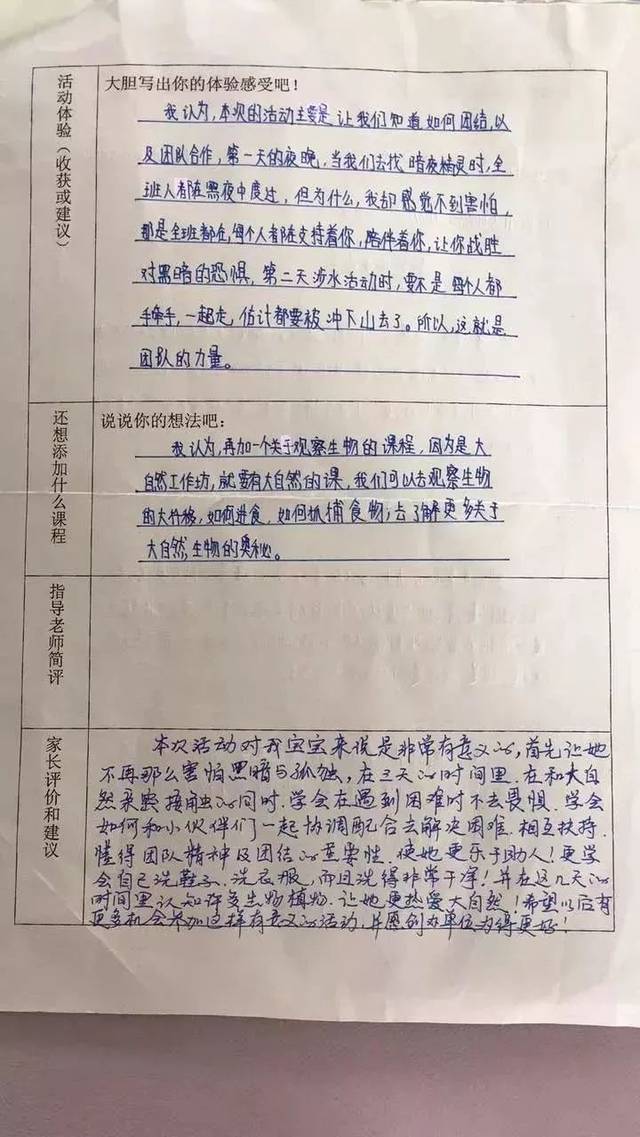 活动体验（收获或建议）
大胆写出你的体验感受吧！
我认为，本次的活动主要是让我们知道如何团结，以
及团队合作，第一天的夜晚，当我们去找暗夜精灵时，全
班人都在黑夜中度过，但为什么，我却感觉不到害怕，
那是全班都在，每个人都在支持着你，陪伴着你，让你战胜
对黑暗的恐惧，第二天涉水活动时，要不是每个人都
手牵手，一起走，估计都要被冲下山去了。所以，这就是
团队的力量。
还想添加什么课程
说说你的想法吧：
我认为，再加一个关于观察生物的课程，因为是大
自然工作坊，就要有大自然的课，我们可以去观察生物
的大迁移，如何进食，如何抓捕食物；去了解更多关于
大自然，生物的奥秘。
指导老师简评
家长评价和建议
本次活动对我宝宝来说是非常有意义的，首先让她
不再那么害怕黑暗与孤独，在三天的时间里，在和大自
然亲密接触的同时，学会在遇到困难时不去畏惧，学会
如何和小伙伴们一起协调配合去解决困难，相互扶持，
懂得团队精神及团结的重要性，使她更乐于助人！更学
会自己洗鞋子、洗衣服，而且洗得非常干净！并在这几天的
时间里认知许多生物植物，让她更热爱大自然！希望以后有
更多机会参加这样有意义的活动，并愿创办单位为得更好！